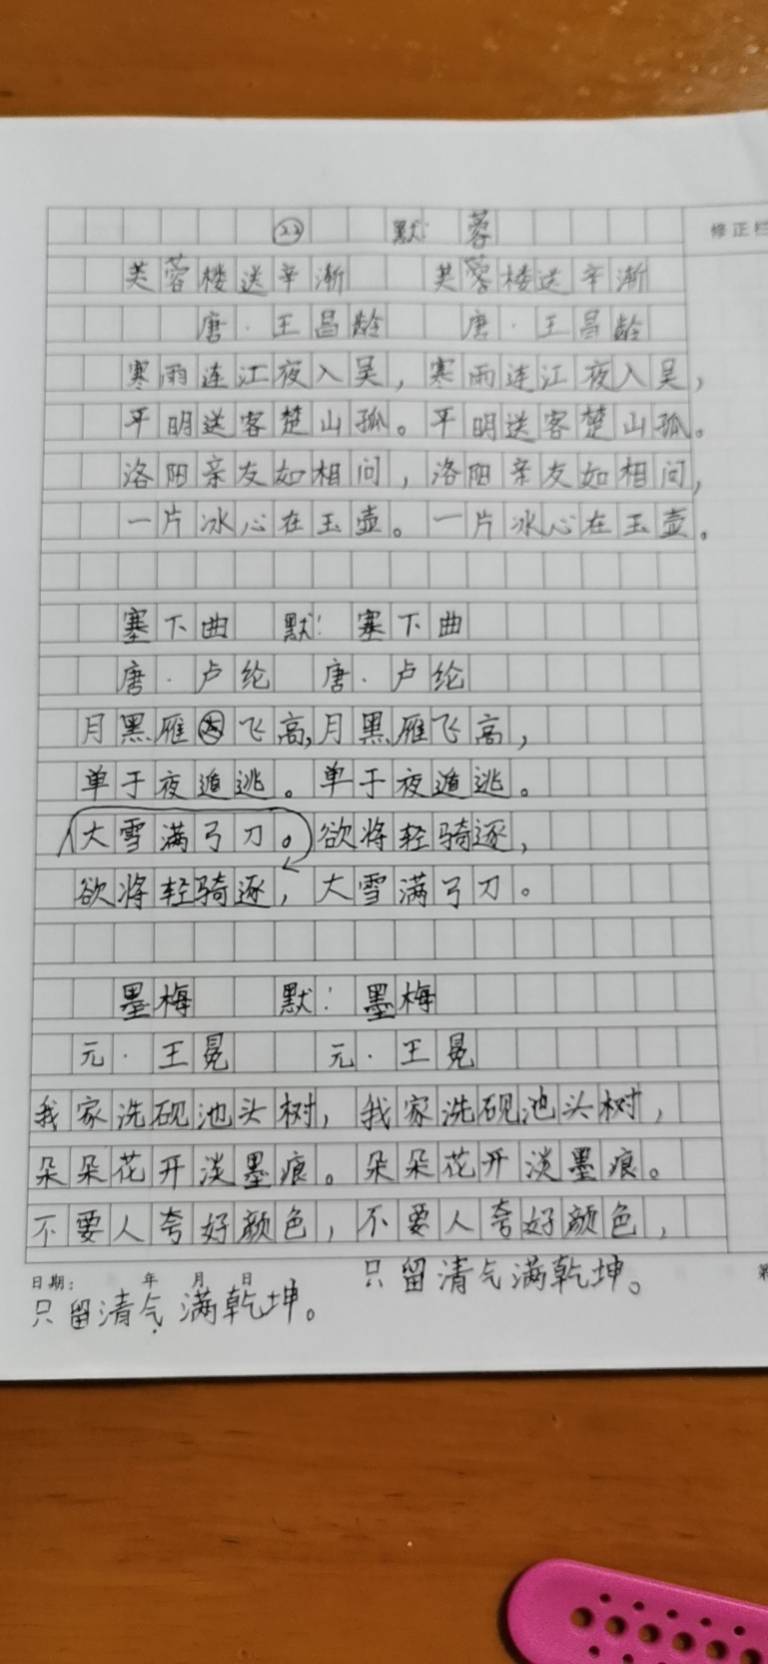 ㉒ 默: 蓉
修正栏
芙蓉楼送辛渐 芙蓉楼送辛渐
唐·王昌龄 唐·王昌龄
寒雨连江夜入吴，寒雨连江夜入吴，
平明送客楚山孤。平明送客楚山孤。
洛阳亲友如相问，洛阳亲友如相问，
一片冰心在玉壶。一片冰心在玉壶。
塞下曲 默: 塞下曲
唐·卢纶 唐·卢纶
月黑雁飞高,月黑雁飞高，
单于夜遁逃。单于夜遁逃。
大雪满弓刀。欲将轻骑逐，
欲将轻骑逐，大雪满弓刀。
墨梅 默: 墨梅
元·王冕 元·王冕
我家洗砚池头树，我家洗砚池头树，
朵朵花开淡墨痕。朵朵花开淡墨痕。
不要人夸好颜色，不要人夸好颜色，
日期: 年 月 日
只留清气满乾坤。 只留清气满乾坤。